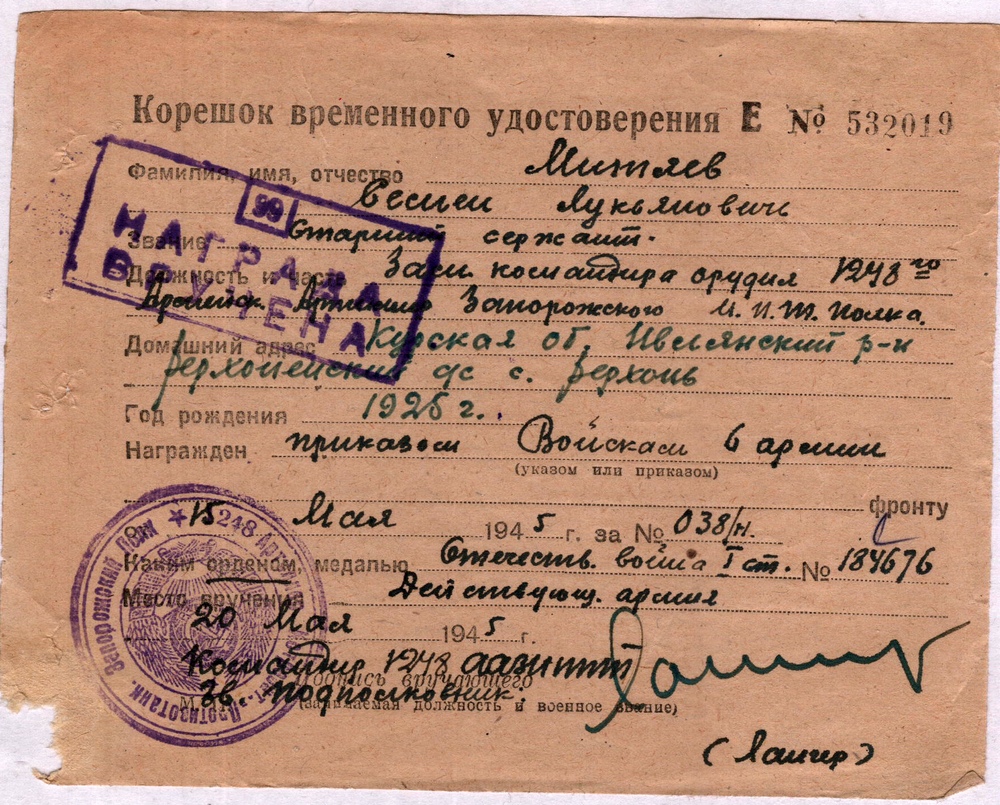 Корешок временного удостоверения Е № 532019
Фамилия, имя, отчество Митяев
Семен Лукьянович
Звание Старший сержант.
Должность и часть Зам. командира орудия 1248го
Армейск. Запорожского И.П.Т. полка.
Домашний адрес Курская об. Ивнянский р-н
Верхопенский с/с с. Верхопь
Год рождения 1925 г.
Награжден приказом Войскам 6 армии
(указом или приказом)
фронту
15 Мая 1945 г. за № 038/н.
Каким орденом, медалью Отечеств. война I ст. № 184676
Место вручения Действующ. армия
20 Мая 1945 г.
Командир 1248 ААЗИПТП
Подпись вручающего
Зв. подполковник:
(занимаемая должность и военное звание)
(Лангер)
99
НАГРАДА
ВРУЧЕНА
1248 Противотанк. Запорожский полк